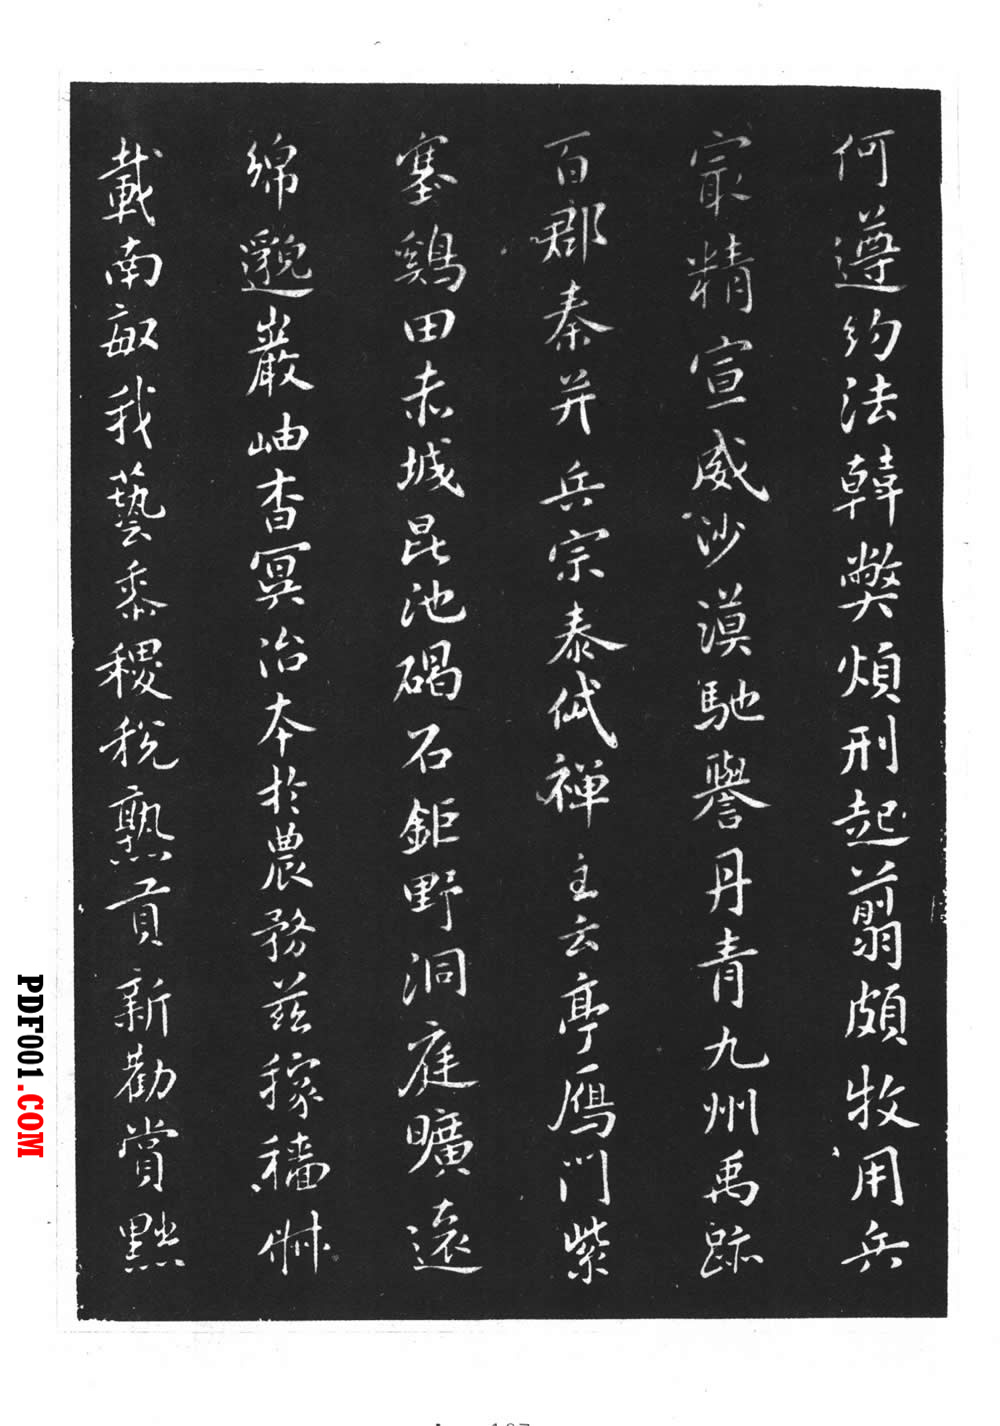 何遵約法韓弊煩刑起翦頗牧用兵
冣精宣威沙漠馳譽丹青九州禹跡
百郡秦并兵宗泰岱禪主云亭鴈門紫
塞鷄田赤城昆池碣石鉅野洞庭曠遠
綿邈巖岫杳冥治本於農務茲稼穡俶
載南畝我藝黍稷稅熟貢新勸賞黜
PDF001.COM